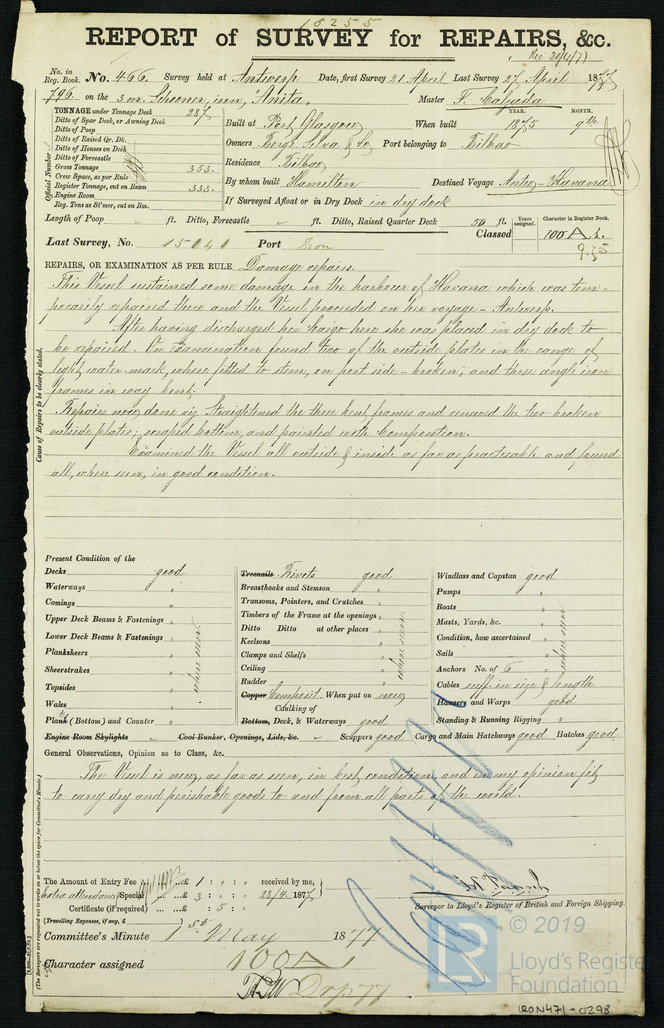 18255
REPORT of SURVEY for REPAIRS, &c.
Rec 30/4/77
No. in Reg. Book. No. 466 Survey held at Antwerp Date, first Survey 21 April Last Survey 27 April 1877
796 on the 3 m. Schooner, iron, "Anita, Master F. Calzada
TONNAGE under Tonnage Deck 287
Ditto of Spar Deck, or Awning Deck
Ditto of Poop
Ditto of Raised Qr. Dk.
Ditto of Houses on Deck
Ditto of Forecastle
Gross Tonnage 353.
Crew Space, as per Rule
Register Tonnage, cut on Beam 333.
Engine Room
Reg. Tons as St'mer, cut on Bm.
Official Number
YEAR. MONTH.
Built at Port Glasgow When built 1875 9th
Owners Silva & Co Port belonging to Bilbao
Residence Bilbao
By whom built Hamilton Destined Voyage Antw - Havana
If Surveyed Afloat or in Dry Dock in dry dock
Length of Poop ft. Ditto, Forecastle ft. Ditto, Raised Quarter Deck 50 ft.
Classed Years assigned. Character in Register Book. 100 A 1.
9.75
Last Survey, No. 15041 Port Iron
REPAIRS, OR EXAMINATION AS PER RULE Damage repairs.
Cause of Repairs to be clearly stated.
This Vessel sustained some damage in the harbour of Havana which was tem-
porarily repaired there and the Vessel proceeded on her voyage - Antwerp.
After having discharged her Cargo here she was placed in dry dock to
be repaired. On Examination found two of the outside plates in the range of
light water mark, where fitted to stem, on port side - broken; and three angle iron
frames in way bent;
Repairs now done viz Straightened the three bent frames and renewed the two broken
outside plates; scraped bottom, and painted with Composition.
Examined the Vessel all outside & inside as far as practicable and found
all, where seen, in good condition.
Present Condition of the
Decks good
Waterways "
Comings "
Upper Deck Beams & Fastenings "
Lower Deck Beams & Fastenings "
Planksheers "
Sheerstrakes "
Topsides "
Wales "
Plank (Bottom) and Counter "
when seen
Treenails Rivets good
Breasthooks and Stemson "
Transoms, Pointers, and Crutches "
Timbers of the Frame at the openings "
Ditto Ditto at other places "
Keelsons "
Clamps and Shelfs "
Ceiling "
Rudder "
when seen
Copper Composit. When put on now
Caulking of
Bottom, Deck, & Waterways good
Windlass and Capstan good
Pumps "
Boats "
Masts, Yards, &c. "
Condition, how ascertained "
Sails "
when seen
Anchors No. of 6
Cables suff. in size & length
Hawsers and Warps good
Standing & Running Rigging "
Engine Room Skylights Coal Bunker, Openings, Lids, &c. Scuppers good Cargo and Main Hatchways good Hatches good
General Observations, Opinion as to Class, &c.
The Vessel is now, as far as seen, in best condition, and in my opinion fit
to carry dry and perishable goods to and from all parts of the world.
(The Surveyors are requested not to write on or below the space for Committee's Minute.)
The Amount of Entry Fee ...£ 1 : " : " received by me,
Extra attendance Special ...£ 3 : " : " 28/4 1877
Certificate (if required) ...£ " : 5 : "
(Travelling Expenses, if any, £ )
Surveyor to Lloyd's Register of British and Foreign Shipping.
Committee's Minute 1st May 1877
Character assigned 100 A
© 2019
LR
Lloyd's Register
Foundation
IRON471-0298